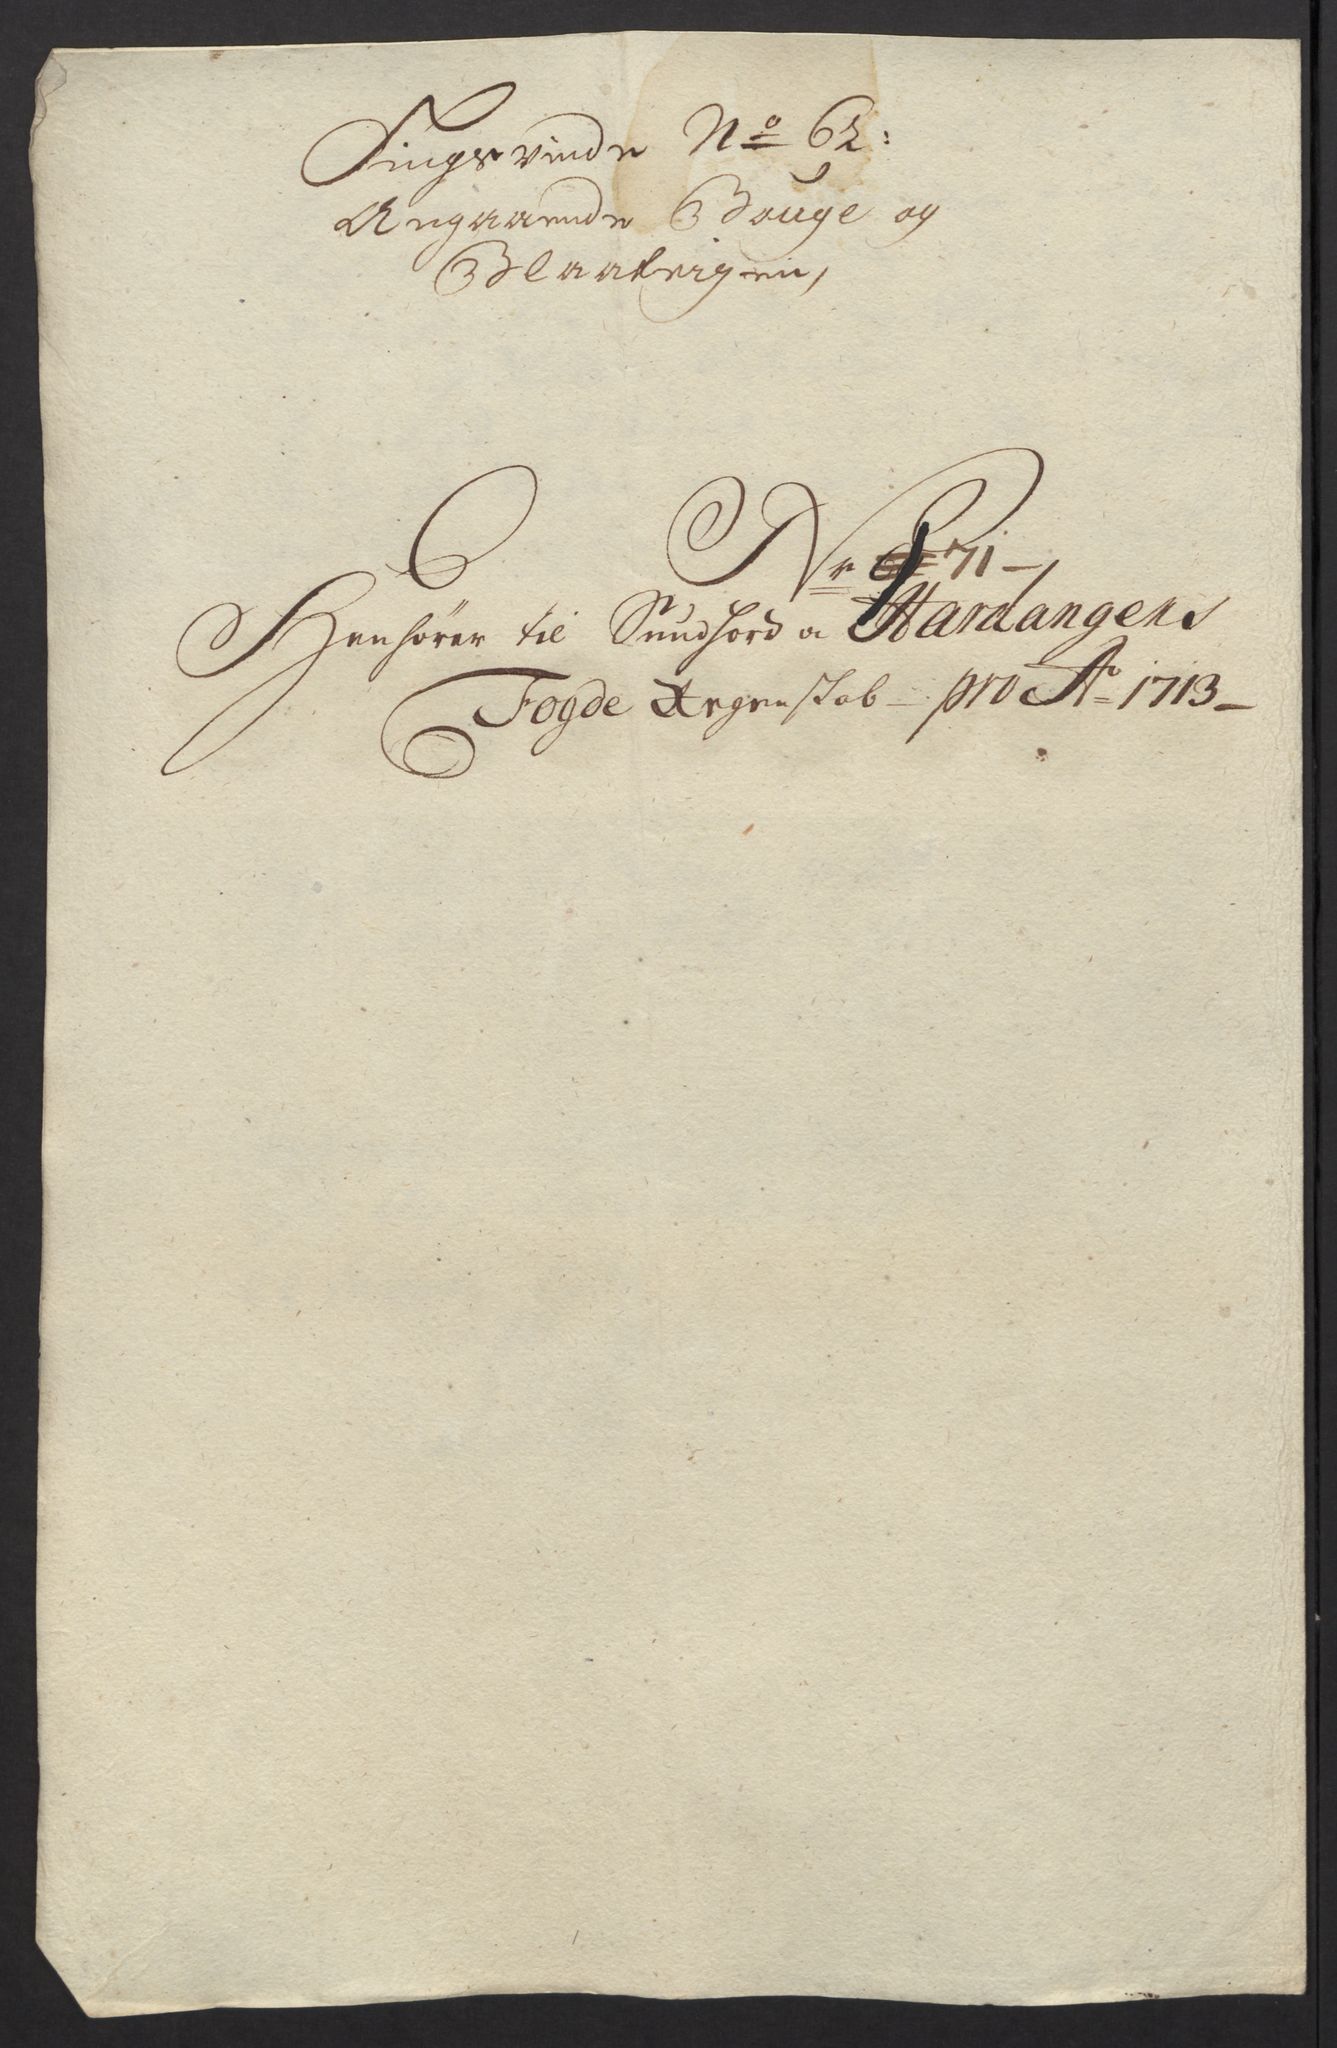 Tingsvinde No 62:
Angaaende Bouge og
Blaateigen,
Nr 71 -
Henhörer til Sundhord a Hardangens
Fogde Regenskab - pro Ao 1713 -